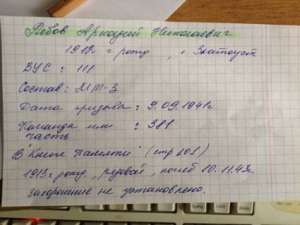 Рябов Аркадий Николаевич
1918 г рожд , г Златоуст
ВУС : 111
Состав : МТ-3
Дата призова : 9.09.1941г
Команда или : 388
часть
В "Книге Памяти" (стр 201)
1913г рожд, рядовой, погиб 10.11.43г
захоронение не установлено.